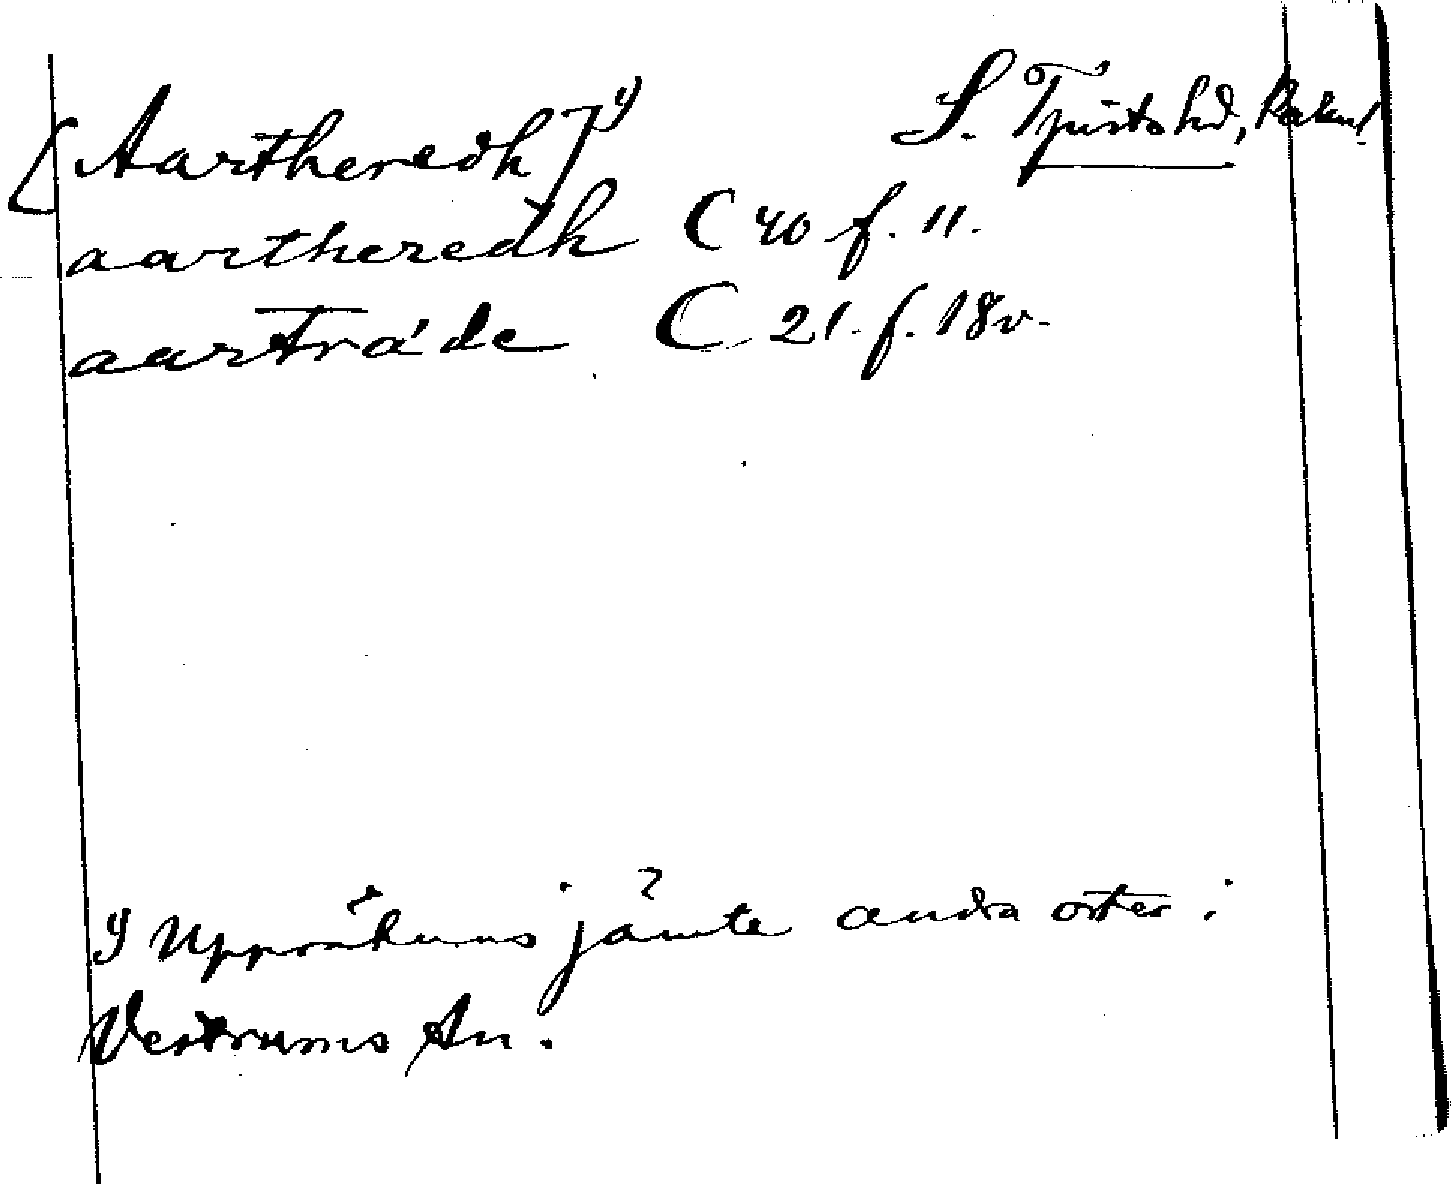 [Aartheredh]¹⁾ S. Tjusts hd, Kalm l
aartheredh C 40 f. 11.
aartråde C 21. f. 18v.
¹⁾ Uppräknas jämte andra orter i
Vestrums sn.